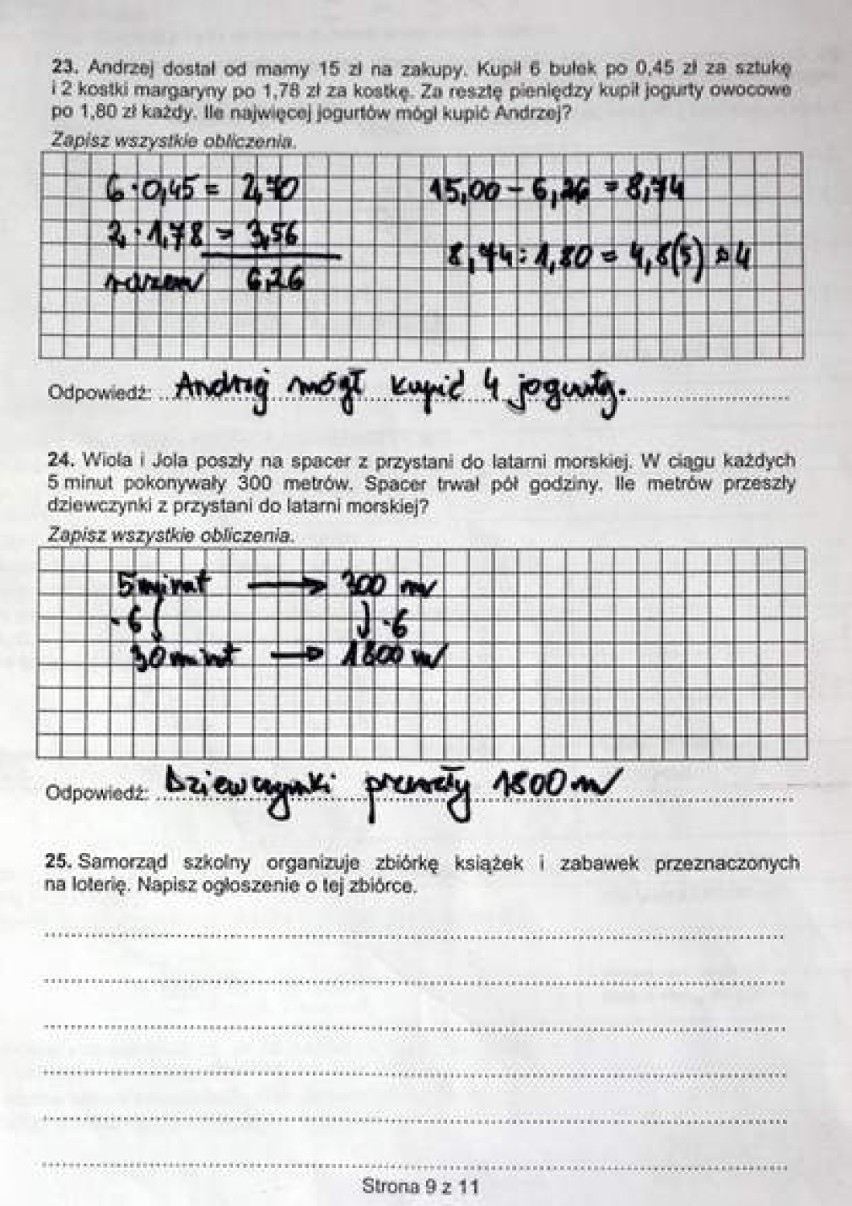 23. Andrzej dostał od mamy 15 zł na zakupy. Kupił 6 bułek po 0,45 zł za sztukę
i 2 kostki margaryny po 1,78 zł za kostkę. Za resztę pieniędzy kupił jogurty owocowe
po 1,80 zł każdy. Ile najwięcej jogurtów mógł kupić Andrzej?
Zapisz wszystkie obliczenia.
6 · 0,45 = 2,70
2 · 1,78 = 3,56
razem 6,26
15,00 - 6,26 = 8,74
8,74 : 1,80 = 4,8(5) ≈ 4
Odpowiedź: Andrzej mógł kupić 4 jogurty.
24. Wiola i Jola poszły na spacer z przystani do latarni morskiej. W ciągu każdych
5 minut pokonywały 300 metrów. Spacer trwał pół godziny. Ile metrów przeszły
dziewczynki z przystani do latarni morskiej?
Zapisz wszystkie obliczenia.
5 minut → 300 m
·6 ↓ ↓ ·6
30 minut → 1800 m
Odpowiedź: Dziewczynki przeszły 1800 m
25. Samorząd szkolny organizuje zbiórkę książek i zabawek przeznaczonych
na loterię. Napisz ogłoszenie o tej zbiórce.
Strona 9 z 11